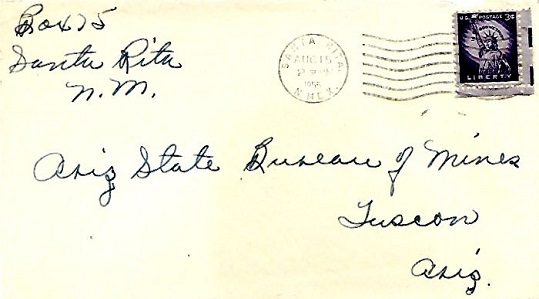 Box 75
Santa Rita
N.M.
SANTA RITA
AUG 15
N. MEX.
U.S. POSTAGE 3¢
LIBERTY
Ariz State Bureau of Mines
Tuscon
Ariz.